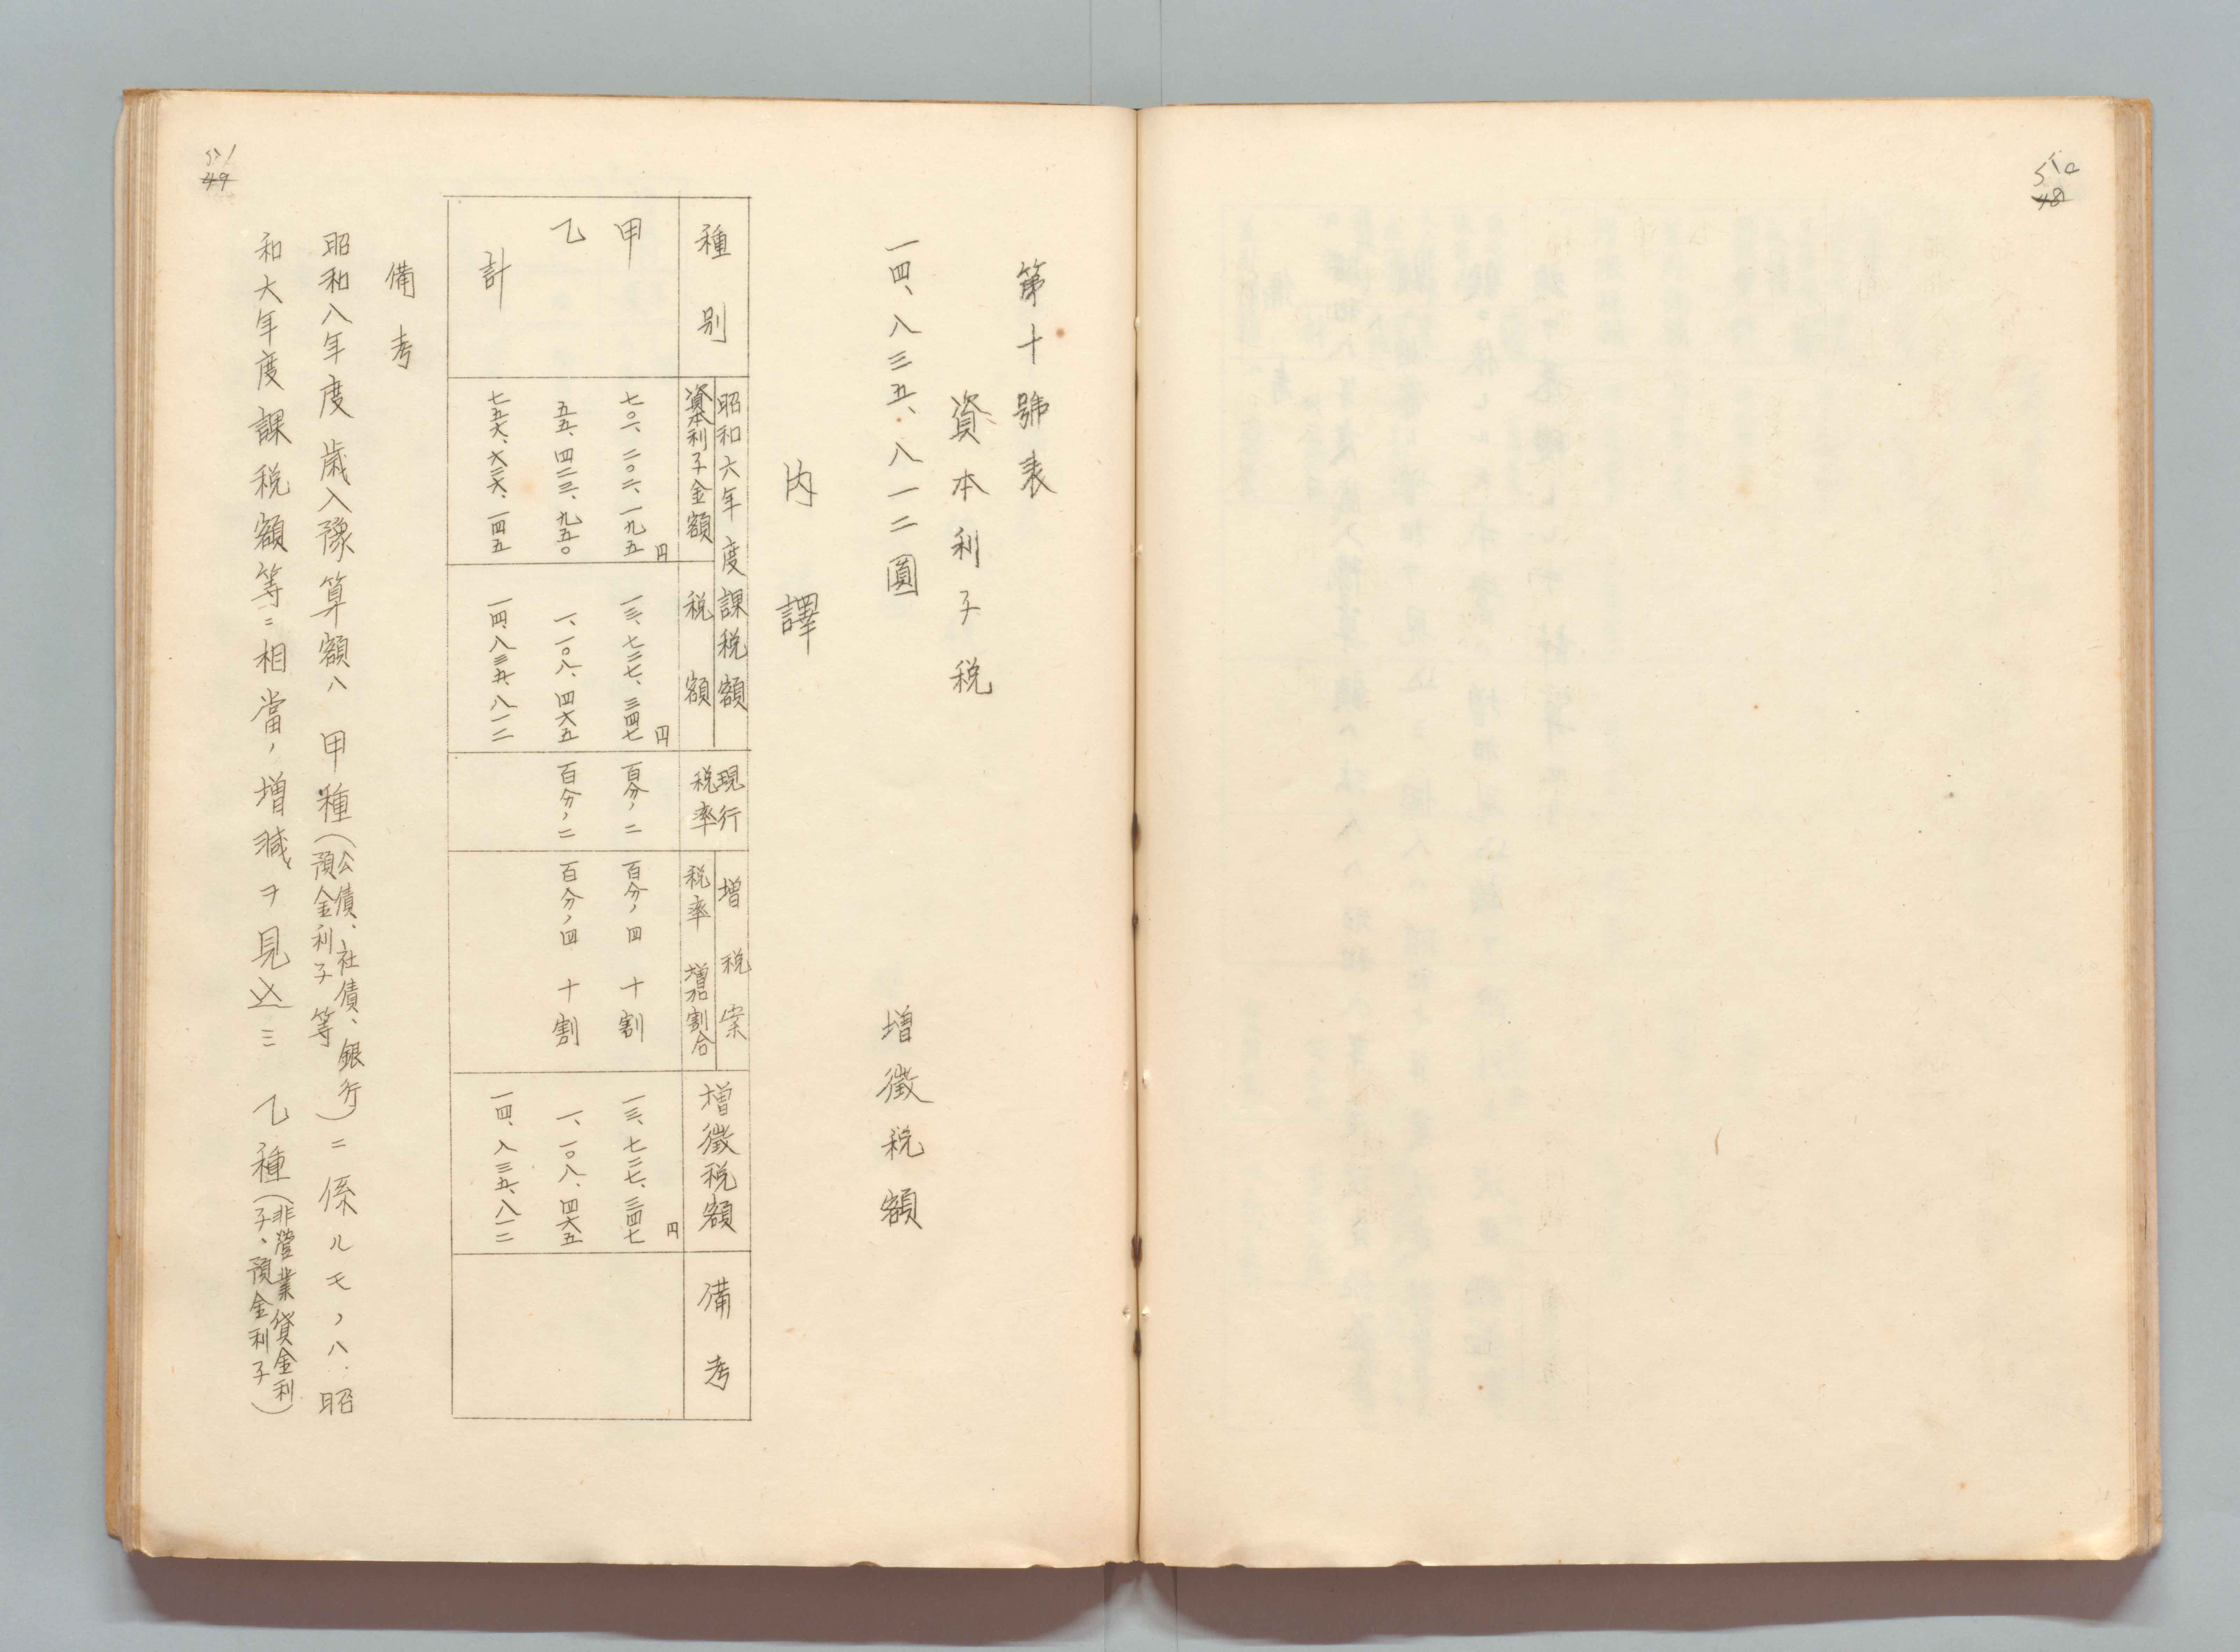 510
48
第十號表
資本利子税
一四、八三五、八一二圓 増徴税額
内譯
種別 昭和六年度課税額 現行税率 増税案 増徴税額 備考
資本利子金額 税額 税率 増加割合
甲 七〇一、二〇二、一九五円 一三、七二七、三四七円 百分ノ二 百分ノ四 十割 一三、七二七、三四七円
乙 五五、四二三、九五〇 一、一〇八、四六五 百分ノ二 百分ノ四 十割 一、一〇八、四六五
計 七五六、六二六、一四五 一四、八三五、八一二 一四、八三五、八一二
備考
昭和八年度歳入豫算額ハ 甲種(公債、社債、銀行預金利子等)ニ係ルモノハ昭
和六年度課税額等ニ相當ノ増減ヲ見込ミ 乙種(非營業貸金利子、預金利子)
511
49